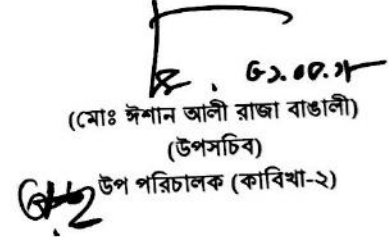 (মোঃ ঈশান আলী রাজা বাঙালী)
(উপসচিব)
উপ পরিচালক (কাবিখা-২)